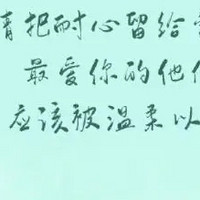 请把耐心留给
最爱你的他
应该被温柔以